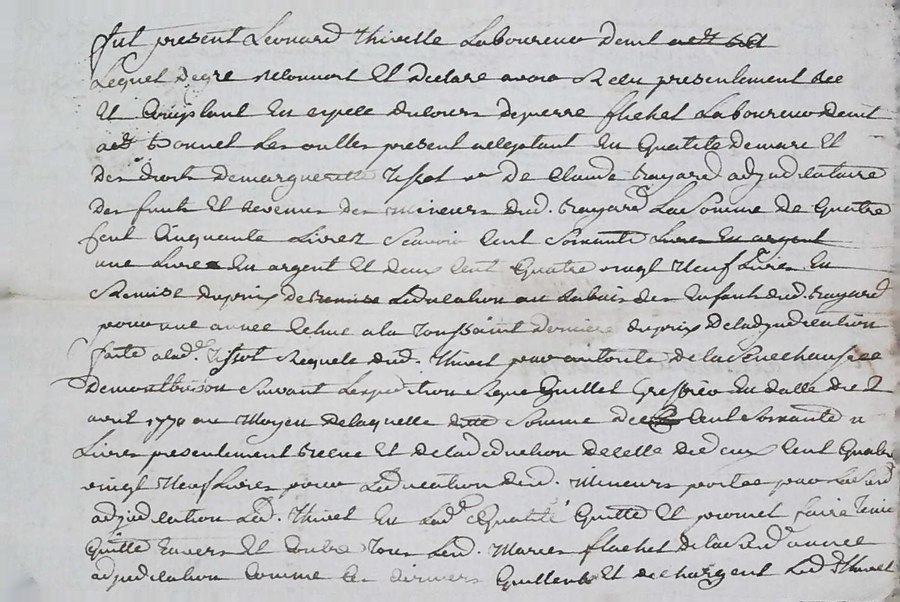 fut present Leonard Thivelle Laboureur demt
Lequel degre reconnoit Et declare avoir Recu presentement
Et Comptant En espece du cours de pierre flachet Laboureur demt
a St Bonnet Les oulles present acceptant En qualité de mary Et
des droits de margueritte tissot ve De Claude Bayard adjudicataire
des fruits Et revenus des mineurs dud. Bayard La somme de quatre
Cent Cinquante Livres Scavoir Cent Soixante Livres En argent
une Livre En argent Et deux Cent quatre vingt Neuf Livres En
Remise du prix de Remise Leducation au Rabais des Enfants dud. Bayard
pour une année Echue a la Toussaint derniere du prix de ladjudication
faite a lad. tissot Requete dud. Thivel pour autorité de la Senechaussée
de montbrison Suivant Lexpedition Signe Greffier En datte du 2
avril 1770 au Moyen de laquelle ditte Somme de Cent Soixante un
Livres presentement Recue Et de la deduction de Celle de deux Cent quatre
vingt Neuf Livres pour Leducation desd. mineurs portée par Lasusd
adjudication Led. Thivel En Lad. qualité quitte Et promet faire tenir
quitte Envers Et Contre Tous Lesd. Mariés flachet de la susd. année
adjudication Comme Ces derniers quittent Et dechargent Led. Thivel